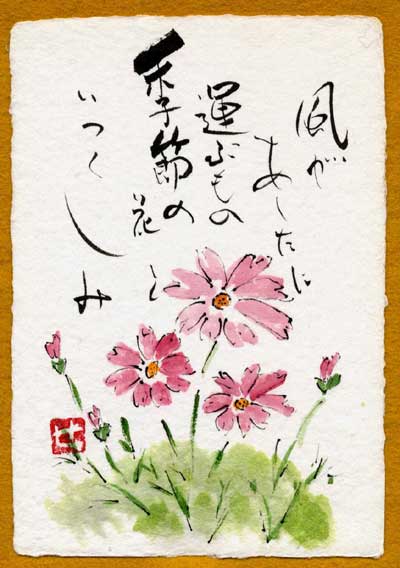 風が
あしたに
運ぶもの
季節の
花と
いつくしみ